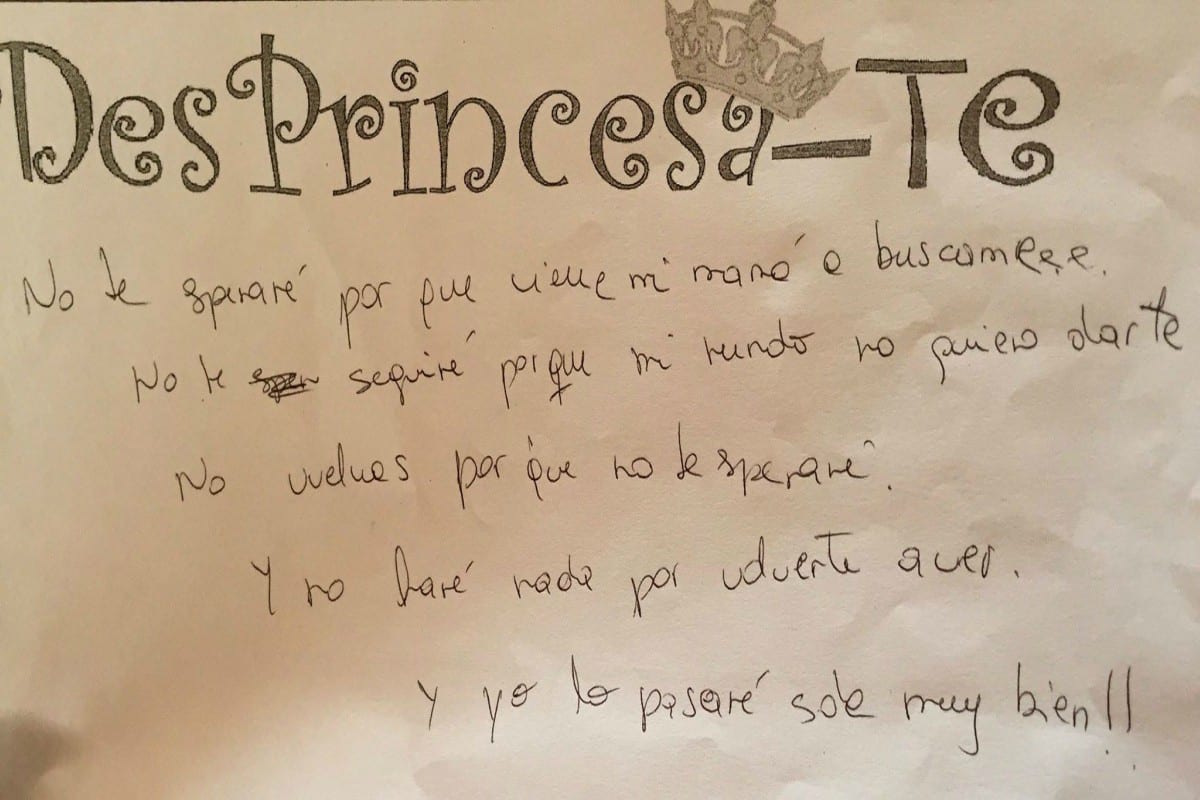 DesPrincesa-Te
No te speraré por que viene mi mamá a buscarmeee.
No te seguiré porque mi mundo no quiero darte
No vuelvas por que no te speraré.
Y no haré nada por volverte a ver.
Y yo lo pasaré sola muy bien!!